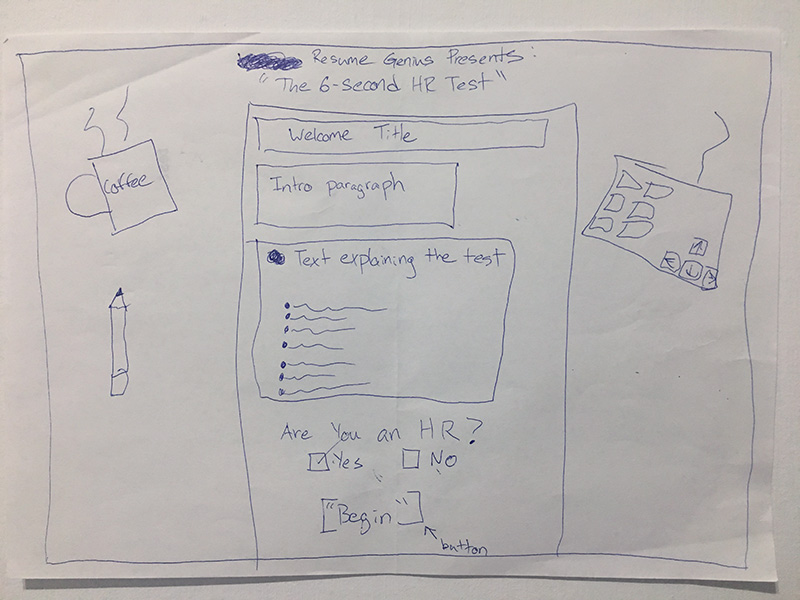 Resume Genius Presents:
"The 6-second HR Test"
Welcome Title
coffee
Intro paragraph
Text explaining the test
Are You an HR?
Yes No
["Begin"]
button